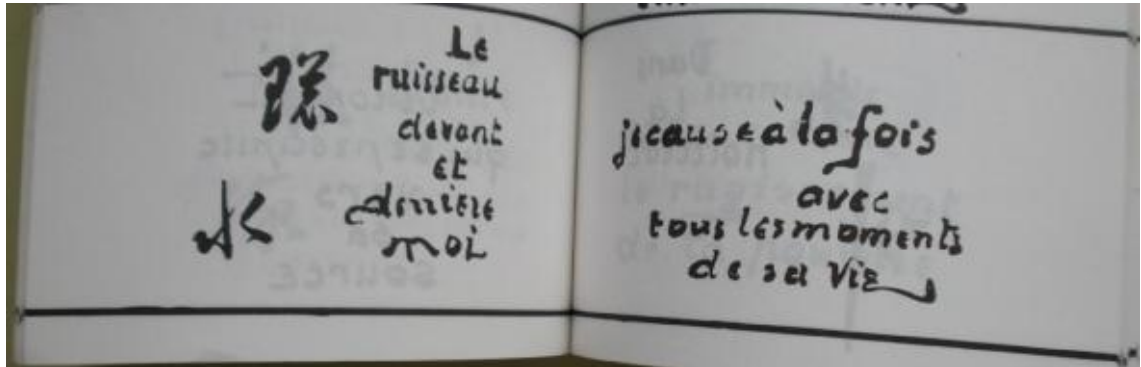 環
水
Le
ruisseau
devant
et
derrière
moi
je cause à la fois
avec
tous les moments
de sa vie